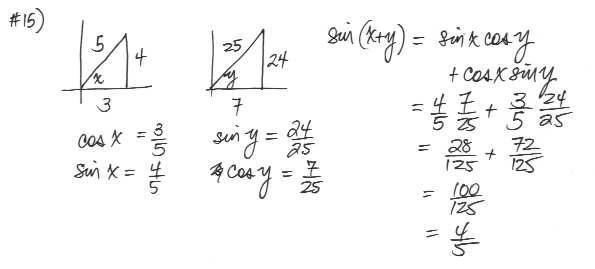 #15)
5 4 x 3
25 24 y 7
cos x = 3/5
sin x = 4/5
sin y = 24/25
cos y = 7/25
sin (x+y) = sin x cos y
+ cos x sin y
= 4/5 7/25 + 3/5 24/25
= 28/125 + 72/125
= 100/125
= 4/5